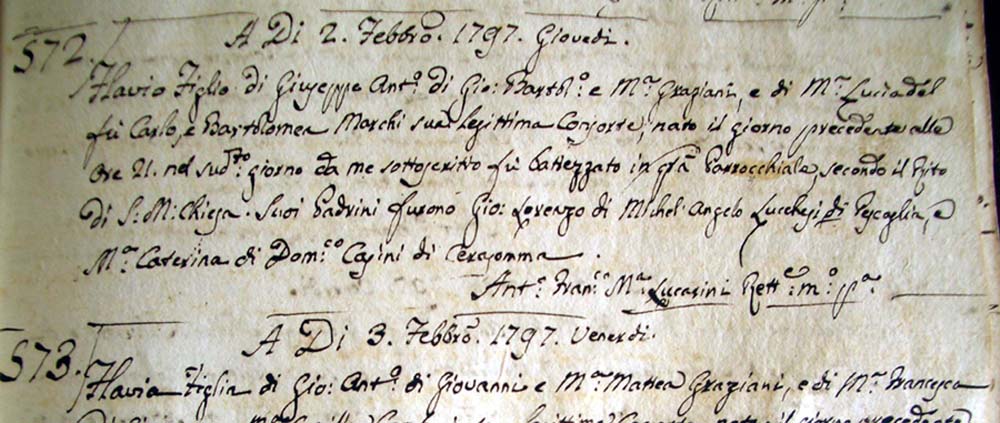 572. A Di 2. Febbro. 1797. Giovedi.
Flavio Figlio di Giuseppe Anto. di Gio: Bartolo. e Ma. Graziani, e di Ma. Lucia del
fù Carlo, e Bartolomea Marchi sua legittima Consorte, nato il giorno precedente alle
Ore 21. nel sudto. giorno da me sottoscritto fù battezzato in qta Parrocchiale, secondo il Rito
di S: M: Chiesa. Suoi Padrini furono Gio: Lorenzo di Michel Angelo Lucchesi di Pescaglia, e
Ma. Caterina di Domco Casini di Cerasomma
Anto. Franco Ma. Lucarini Rette. mo. pa.
573. A Di 3. Febbro. 1797. Venerdi.
Flavia Figlia di Gio: Anto. di Giovanni e Ma. Mattea Graziani, e di Ma. Francesca
legittima Consorte nata il giorno precedente